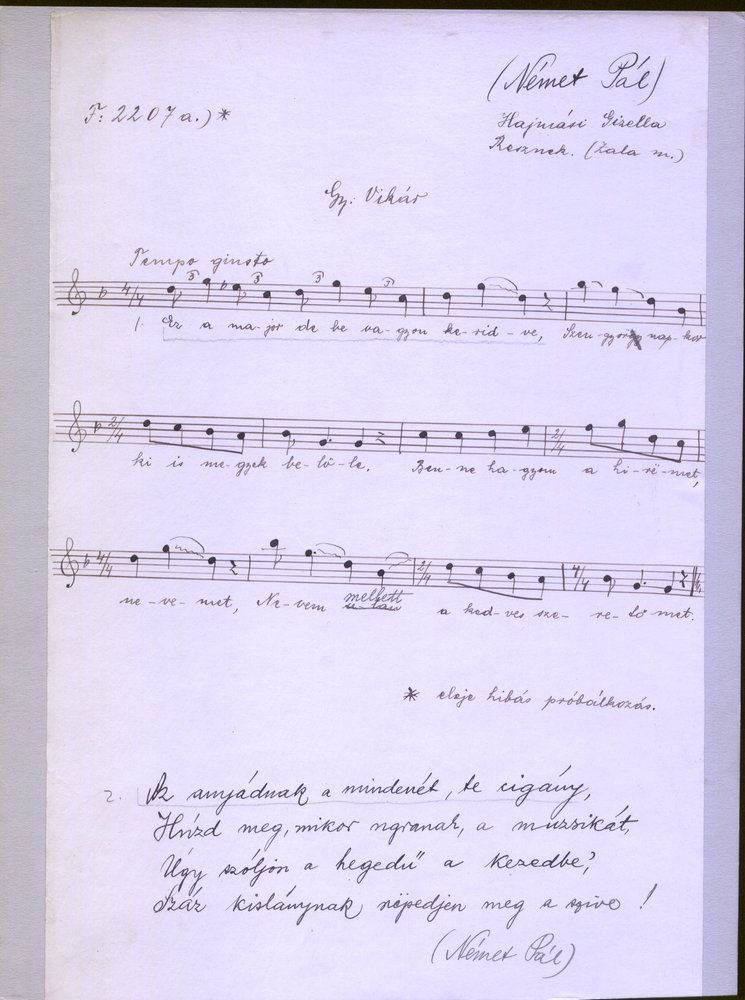 (Német Pál)
F: 2207 a.) *
Hajmási Gizella
Resznek. (Zala m.)
Gy: Vikár
Tempo giusto
1. Ez a ma-jor de be va-gyon ke-rid-ve, Szen-györgy nap-kor
ki is me-gyek be-lö-le. Ben-ne ha-gyom a hi-rë-met,
ne-ve-met, Ne-vem mellett a ked-ves sze-re-tö-met.
* eleje hibás próbálkozás.
2. Az anyádnak a mindenét, te cigány,
Húzd meg, mikor ugranak, a muzsikát,
Úgy szóljon a hegedű a kezedbe,
Száz kislánynak röpedjen meg a szive!
(Német Pál)